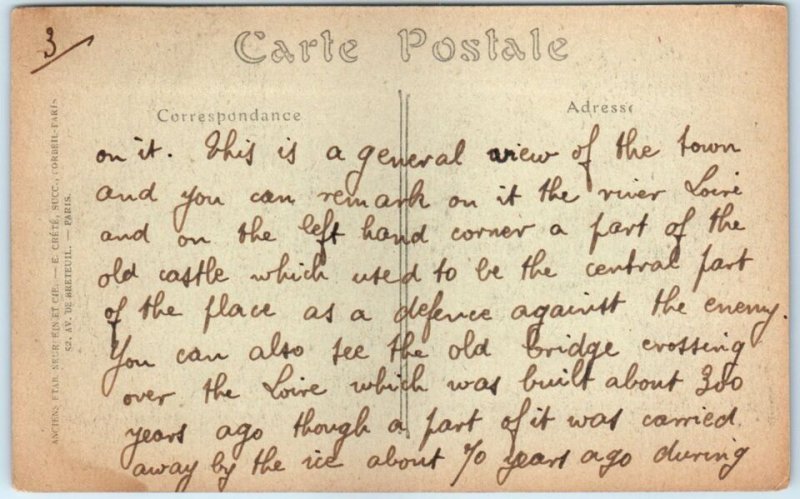 3
Carte Postale
Correspondance
Adresse
on it. This is a general view of the town
and you can remark on it the river Loire
and on the left hand corner a part of the
old castle which used to be the central part
of the place as a defence against the enemy.
You can also see the old bridge crossing
over the Loire which was built about 300
years ago though a part of it was carried
away by the ice about 70 years ago during
ANCIENS ETAB. NEURDEIN ET CIE. — E. CRÉTÉ, SUCC., CORBEIL-PARIS
52, AV. DE BRETEUIL. — PARIS.